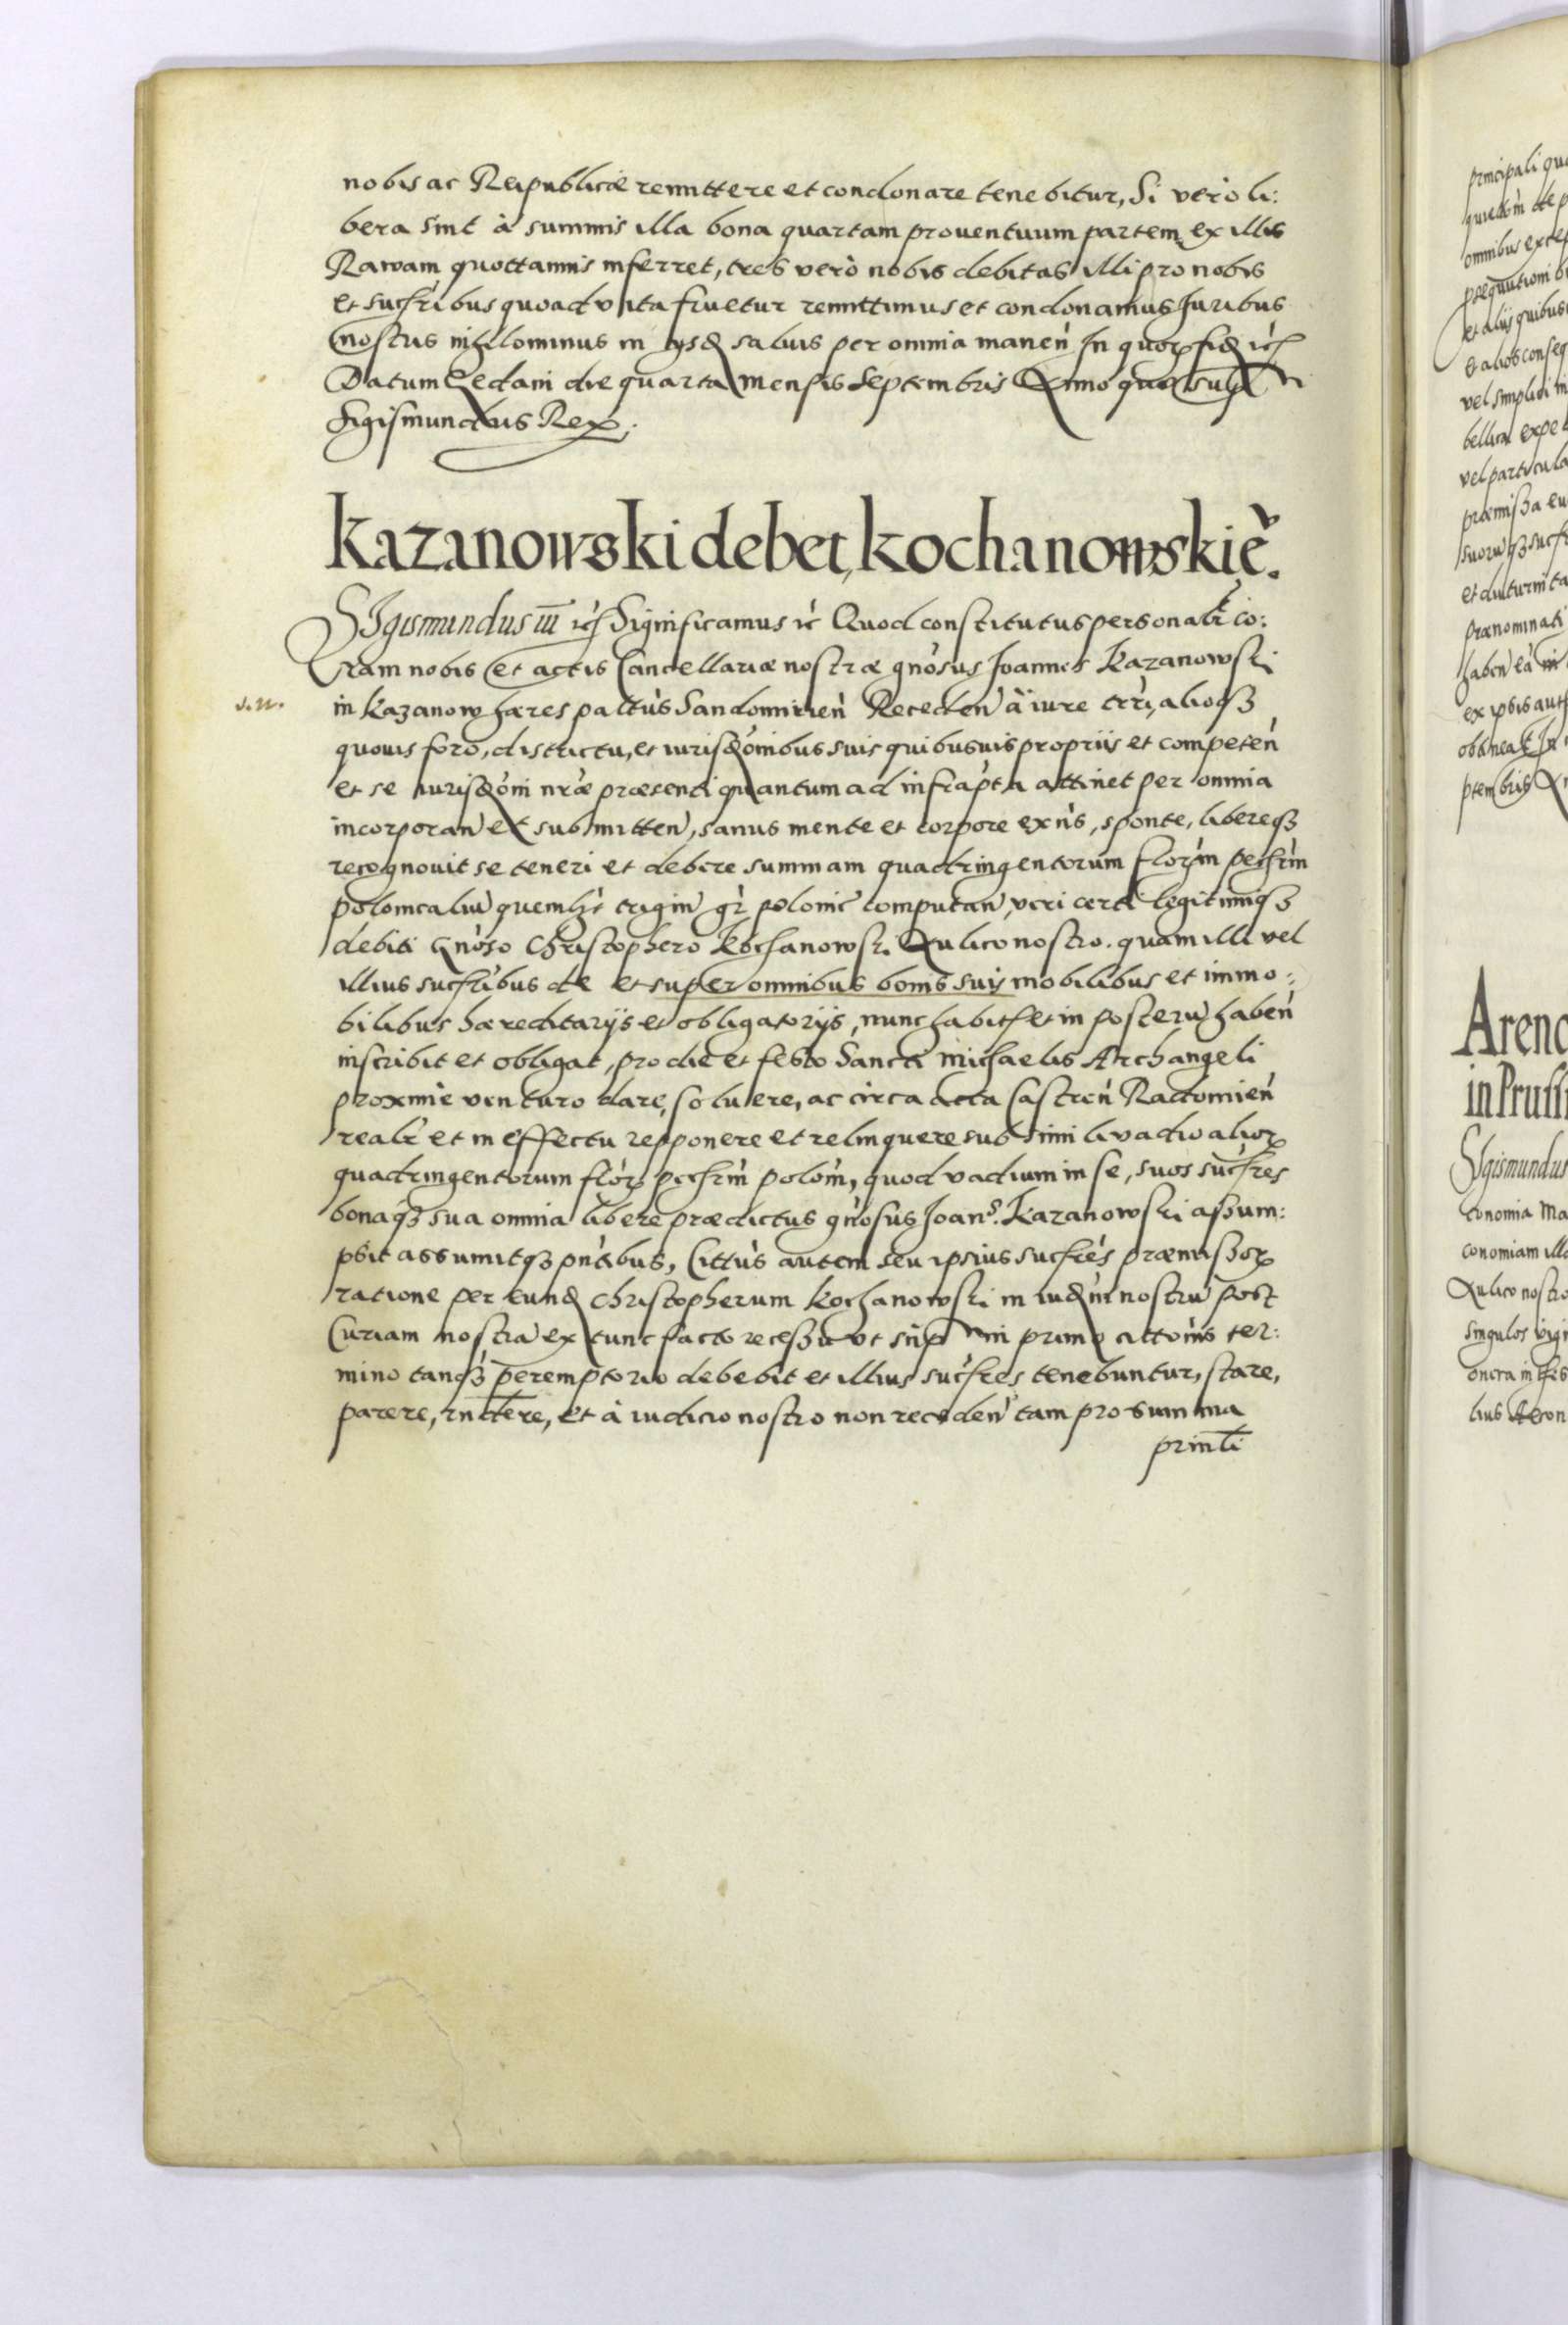 nobis ac Reipublicæ remittere et condonare tenebitur, Si verò li:
bera sint à summis illa bona quartam prouentuum partem ex illis
Rawam quottannis inferret, tres verò nobis debitas illi pro nobis
et succribus quoad vita fruetur remittimus et condonamus Iuribus
nostris nihilominus in ijsd saluis per omnia manen In quorum fid ic
Datum die quarta mensis Septembris Anno quo supra
Sigismundus Rex.
Kazanowski debet kochanowskiẽ.
SIgismundus iii ic Significamus ic Quod constitutus personalr co:
ram nobis et actis Cancellariæ nostræ gnosus Joannes Kazanowski
in Kazanow hæres palttus Sandomirien Receden à iure terri, alioqз
quouis foro, districtu, et iurisdonibus suis quibusuis propriis et competen
et se iurisdoni nræ præsenti quantum ad infrapta attinet per omnia
incorporan et submitten, sanus mente et corpore exns, sponte, libereqз
recognouit se teneri et debere summam quadringentorum florin pechrin
polonicaliu quemlz trigin gr polonic computan, veri certi legitimiqз
debiti Gnoso Christophero Kochanowski Aulico nostro. quam illi vel
illius sucribus de et super omnibus bonis suis mobilibus et immo:
bilibus hæreditarijs et obligatorijs, nunc habit et in posteru haben
inscribit et obligat, pro die et festo Sancti Michaelis Archangeli
proxime venturo dare, soluere, ac circa acta Castren Radomien
realr et in effectu reponere et relinquere sub simili vadio alior
quadringentorum flor pechrin polon, quod vadium in se, suos sucres
bonaqз sua omnia libere prædictus gnosus Joan⁠s. Kazanowski assum:
psit assumitqз pntibus, Cittus autem seu ipsius sucres præmissor
ratione per eund Christopherum Kochanowski in iudm nostru post
Curiam nostra ex tunc facto recessu vt sup in primo cittonis ter:
mino tanqз peremptorio debebit et illius sucres tenebuntur, stare,
parere, rndere, et à iudicio nostro non receden tam pro summa
prinli
s. n.
principali
omnibus
et alijs quibus
et alios conseq
vel simplici in
bellica expe
vel particula
præmissa
et diuturnita
prænominati
haben ea in
ex ipsis aut
obtineat In
ptembris
Areno
in Pruss
SIgismundus
conomia Ma
conomiam illa
Aulico nostro
singulos vigi
onera in
lius